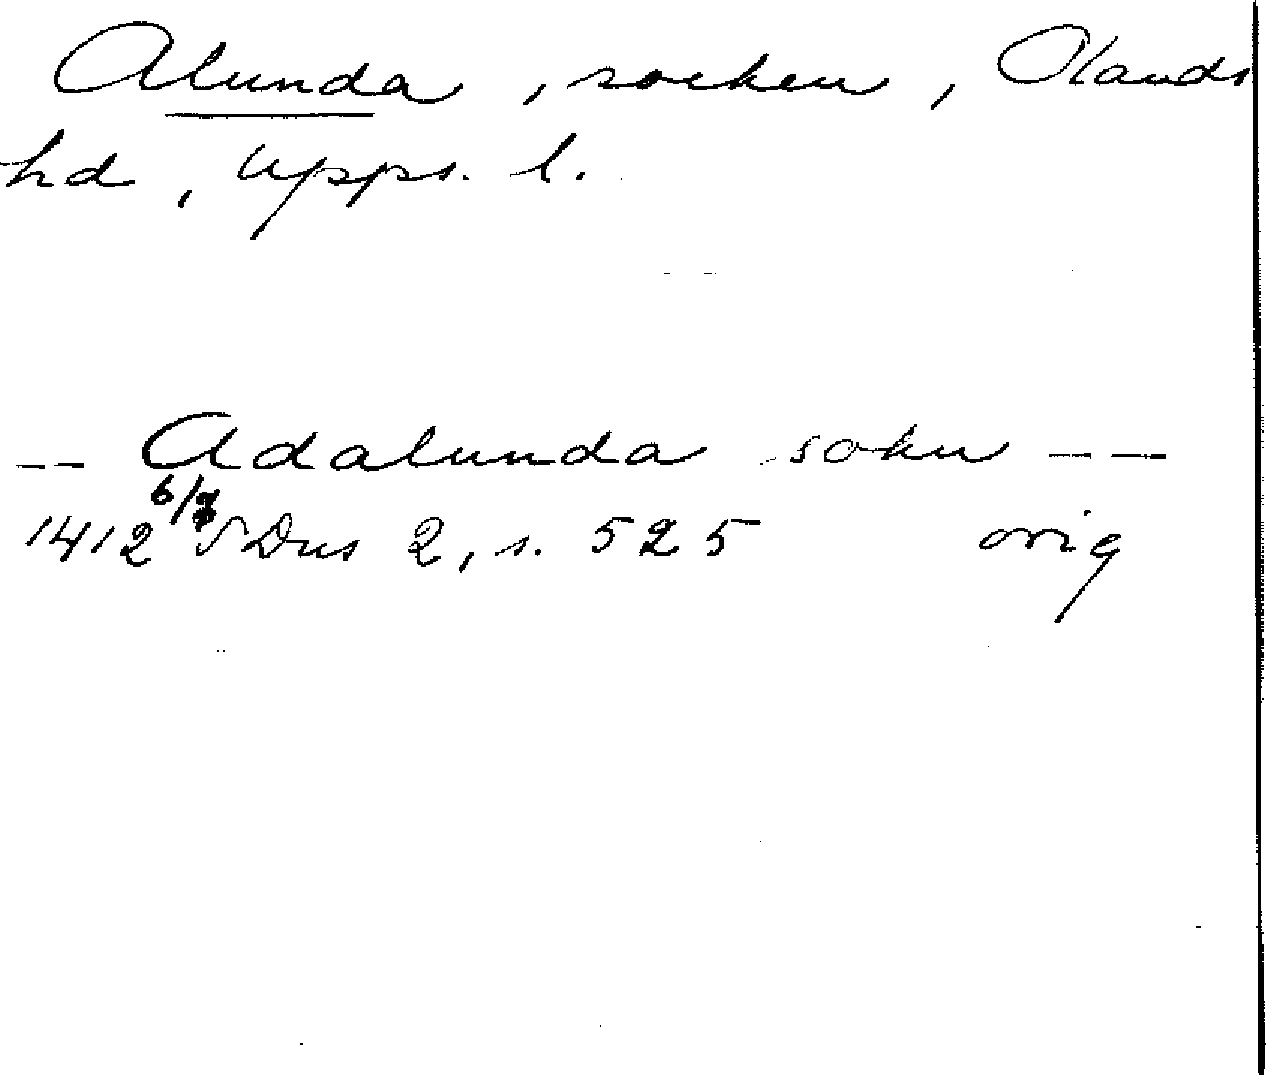 Alunda, socken, Olands
hd, Upps. l.
-- Adalunda sokn --
1412 6/7 SDns 2, s. 525 orig